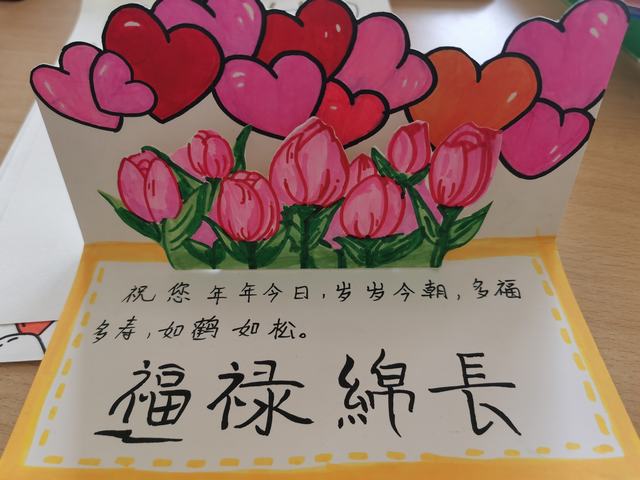 祝您年年今日,岁岁今朝,多福
多寿,如鹤如松。
福禄綿長